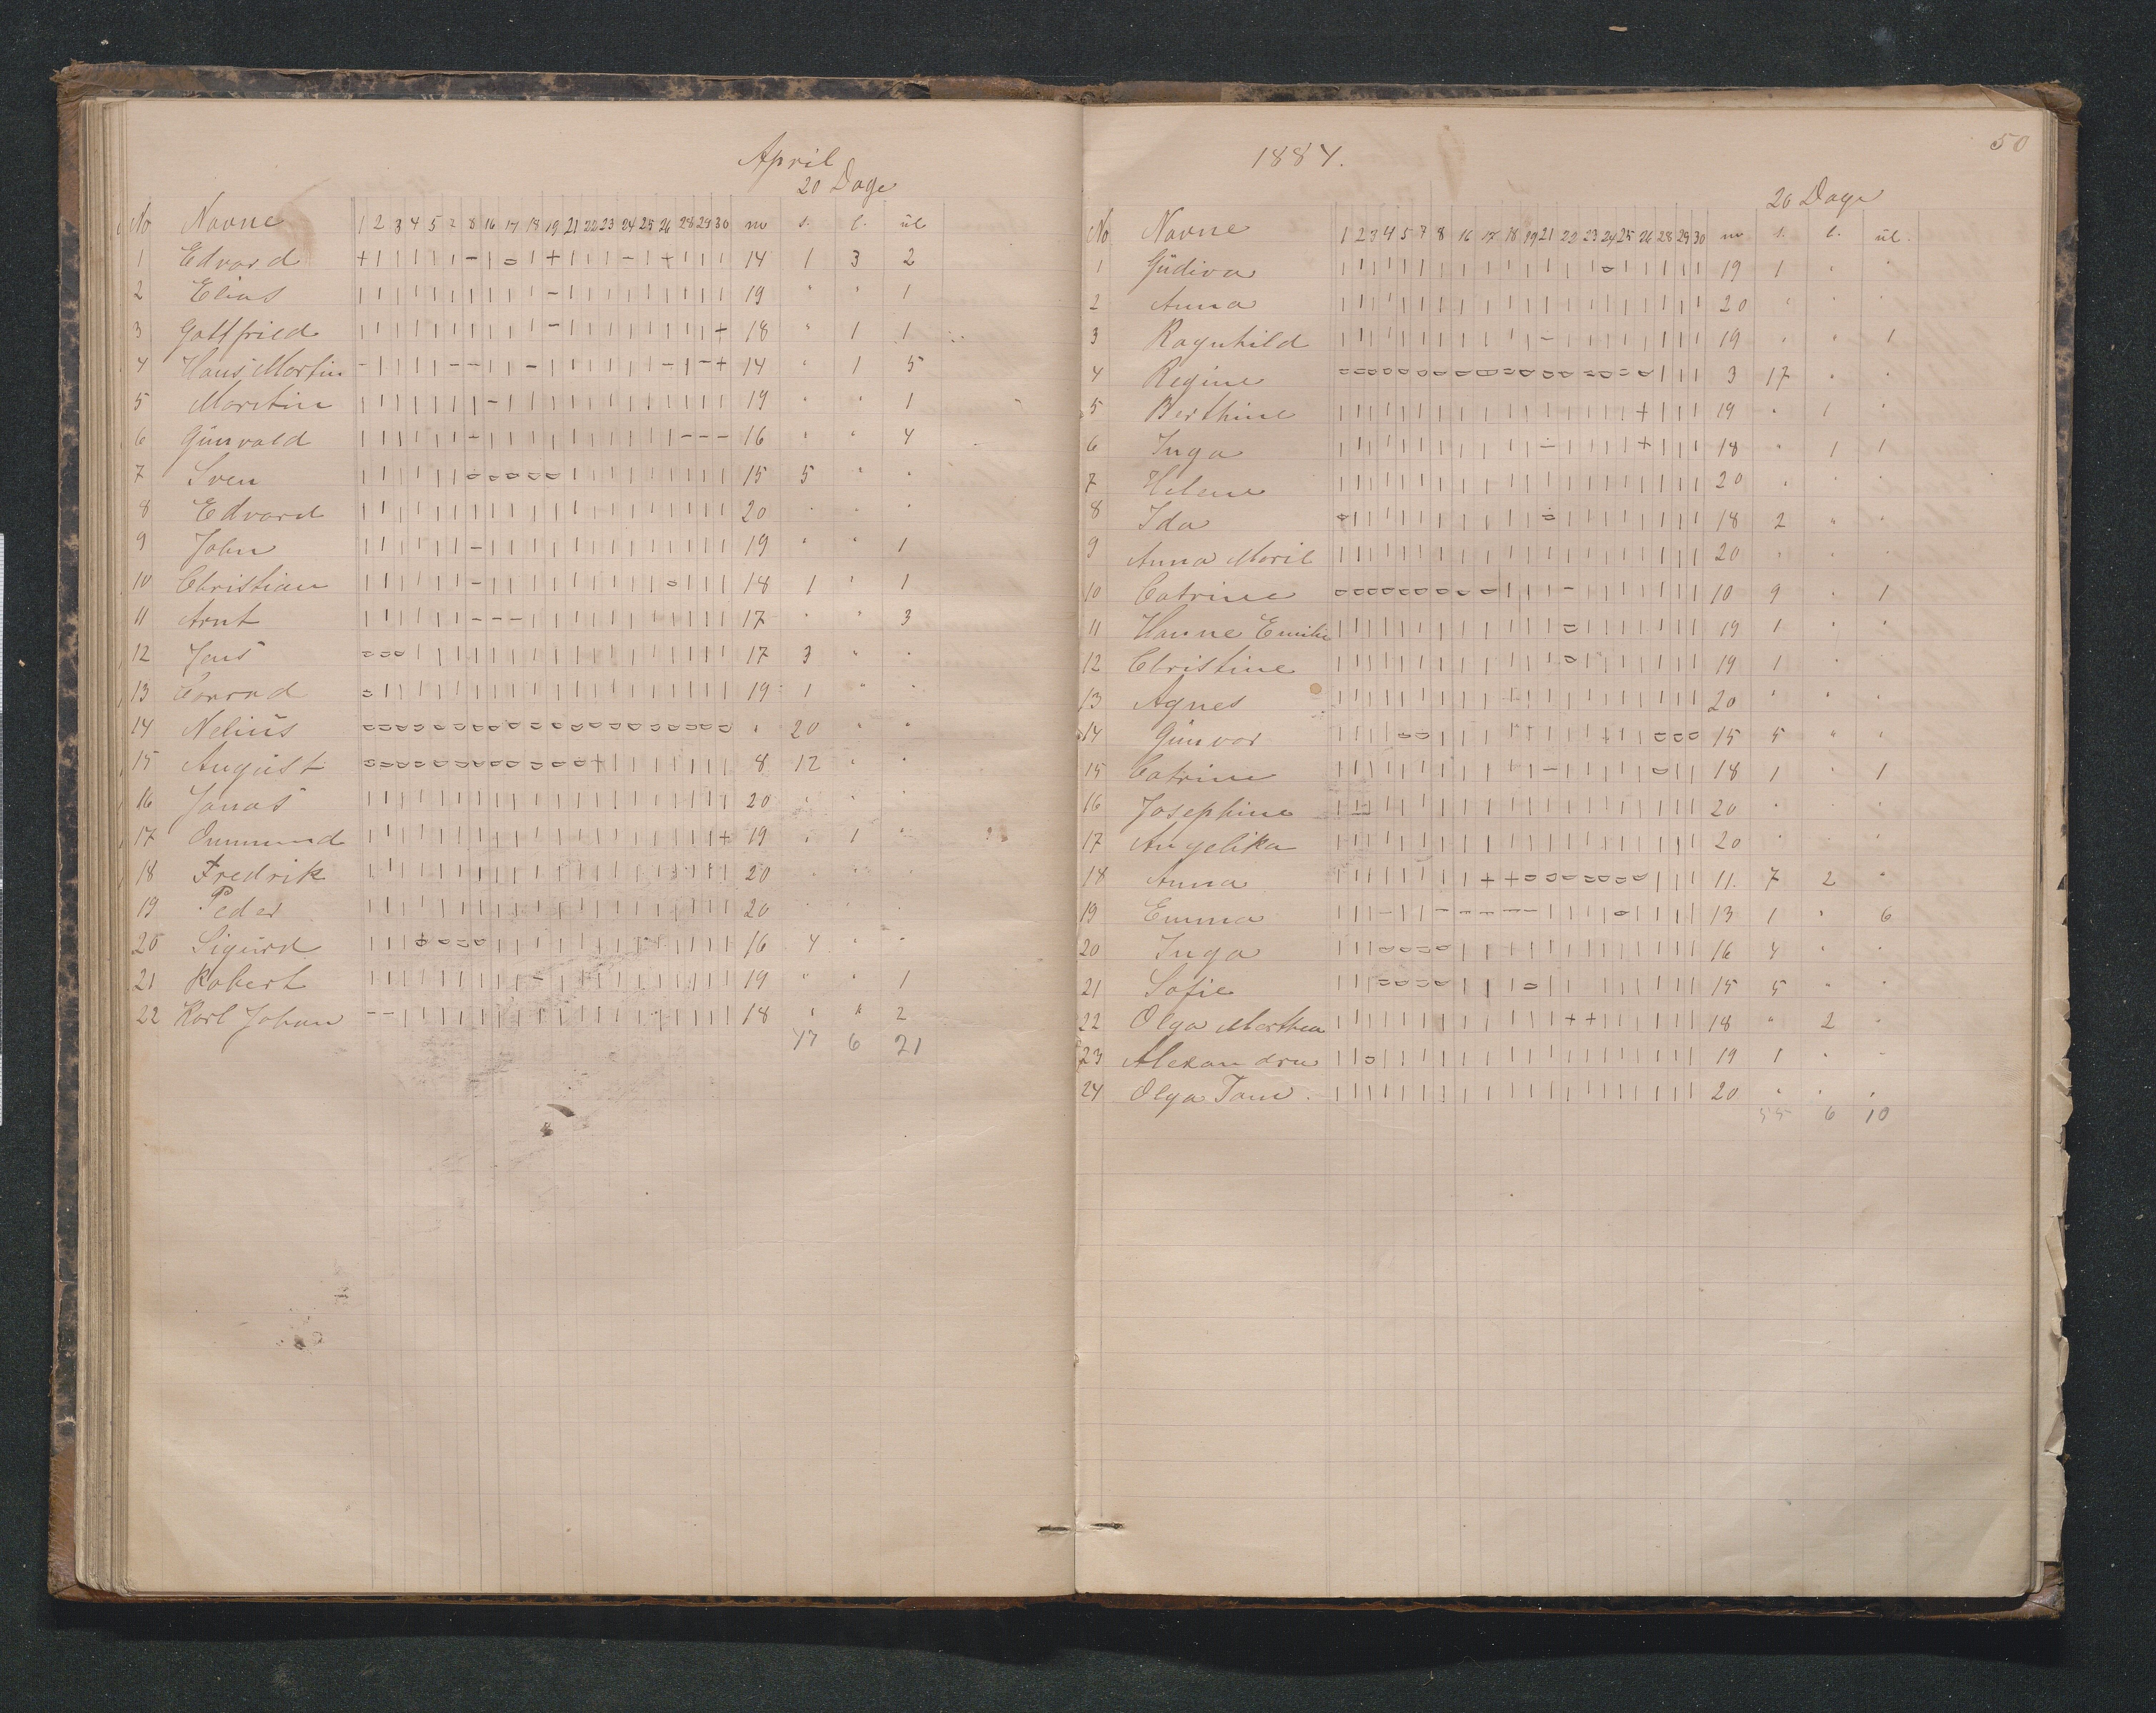 April
20 Dage
No Navne 1 2 3 4 5 7 8 16 17 18 19 21 22 23 24 25 26 28 29 30 m s. l. ul
1 Edvard + | | | | | - | o | + | | | - | + | | | 14 1 3 2
2 Elias | | | | | | | | | | - | | | | | | | | | 19 " " 1
3 Gottfried | | | | | | | | | | - | | | | | | | | + 18 " 1 1
4 Hans Martin - | | | | - - | | - | | | | | | - | - + 14 " 1 5
5 Martin | | | | | | | - | | | | | | | | | | | | 19 " " 1
6 Günvald | | | | | | - | | | | | | | | | | - - - 16 " " 4
7 Sven | | | | | | o o o o o | | | | | | | | | 15 5 " "
8 Edvard | | | | | | | | | | | | | | | | | | | | 20 " " "
9 John | | | | | | - | | | | | | | | | | | | | 19 " " 1
10 Christian | | | | | | - | | | | | | | | | o | | | 18 1 " 1
11 Arnt | | | | | | - - - | | | | | | | | | | | 17 " " 3
12 Jens o o o | | | | | | | | | | | | | | | | | 17 3 " "
13 Conrad o | | | | | | | | | | | | | | | | | | | 19 1 " "
14 Nelius o o o o o o o o o o o o o o o o o o o o " 20 " "
15 August o o o o o o o o o o o o + | | | | | | | 8 12 " "
16 Jonas | | | | | | | | | | | | | | | | | | | | 20 " " "
17 Ommund | | | | | | | | | | | | | | | | | | | + 19 " 1 "
18 Fredrik | | | | | | | | | | | | | | | | | | | | 20 " " "
19 Peder | | | | | | | | | | | | | | | | | | | | 20 " " "
20 Sigurd | | | o o o o | | | | | | | | | | | | | 16 4 " "
21 Robert | | | | | | | | | - | | | | | | | | | | 19 " " 1
22 Karl Johan - - | | | | | | | | | | | | | | | | | | 18 " " 2
47 6 21
1884.
50
20 Dage
No Navne 1 2 3 4 5 7 8 16 17 18 19 21 22 23 24 25 26 28 29 30 m s. l. ul.
1 Güdiva | | | | | | | | | | | | | | o | | | | | 19 1 " "
2 Anna | | | | | | | | | | | | | | | | | | | | 20 " " "
3 Ragnhild | | | | | | | | | | | - | | | | | | | | 19 " " 1
4 Regine o o o o o o o o o o o o o o o o o | | | 3 17 " "
5 Berthine | | | | | | | | | | | | | | | | + | | | 19 " 1 "
6 Inga | | | | | | | | | | | - | | | | + | | | 18 " 1 1
7 Helene | | | | | | | | | | | | | | | | | | | | 20 " " "
8 Ida o | | | | | | | | | | o | | | | | | | | 18 2 " "
9 Anna Marie | | | | | | | | | | | | | | | | | | | | 20 " " "
10 Catrine o o o o o o o o o | | | - | | | | | | | 10 9 " 1
11 Hanne Emilie | | | | | | | | | | | | o | | | | | | | 19 1 " "
12 Christine | | | | | | | | | | | | o | | | | | | | 19 1 " "
13 Agnes | | | | | | | | | | | | | | | | | | | | 20 " " "
14 Günvor | | | | o o | | | | | | | | | | | o o o 15 5 " "
15 Catrine | | | | | | | | | | | - | | | | | o | | 18 1 " 1
16 Josephine | | | | | | | | | | | | | | | | | | | | 20 " " "
17 Angelika | | | | | | | | | | | | | | | | | | | | 20 " " "
18 Anna | | | | | | | | + + o o o o o o o | | | 11. 7 2 "
19 Emma | | | - | | - - - - - | | | | o | | | | 13 1 " 6
20 Inga | | | o o o o | | | | | | | | | | | | | 16 4 " "
21 Sofie | | | o o o o | | | o | | | | | | | | | 15 5 " "
22 Olga Marthea | | | | | | | | | | | | + + | | | | | | 18 " 2 "
23 Alexandra | | o | | | | | | | | | | | | | | | | | 19 1 " "
24 Olga Tom. | | | | | | | | | | | | | | | | | | | | 20 " " "
55 6 10